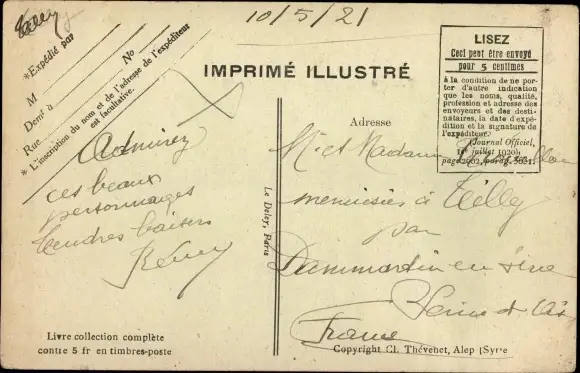 Tilly
10/5/21
*Expédié par
M
No
Demt à
Rue
*L'inscription du nom et de l'adresse de l'expéditeur
est facultative.
IMPRIMÉ ILLUSTRÉ
LISEZ
Ceci peut être envoyé
pour 5 centimes
à la condition de ne por-
ter d'autre indication
que les noms, qualité,
profession et adresse des
envoyeurs et des desti-
nataires, la date d'expé-
dition et la signature de
l'expéditeur.
(Journal Officiel,
juillet 1920,
Admirez
ces beaux
personnages
Tendres baisers
Rémy
Le Deley, Paris
Adresse
M. et Madame
menuisier à Tilly
par
Dammartin en
Seine et
France
Livre collection complète
contre 5 fr en timbres-poste
Copyright Cl. Thévenet, Alep (Syrie